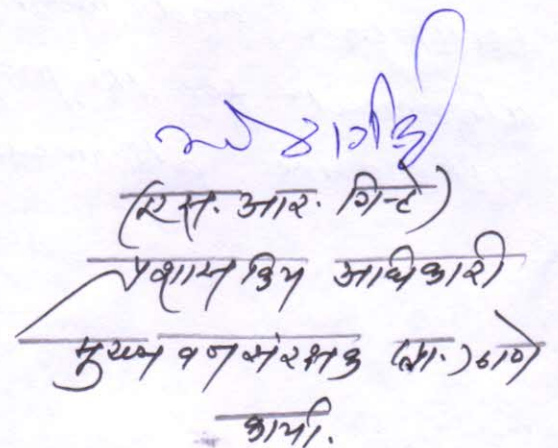 (एस. आर. गिन्हे)
प्रशासकिय अधिकारी
मुख्य वनसंरक्षक (प्रा.) ठाणे